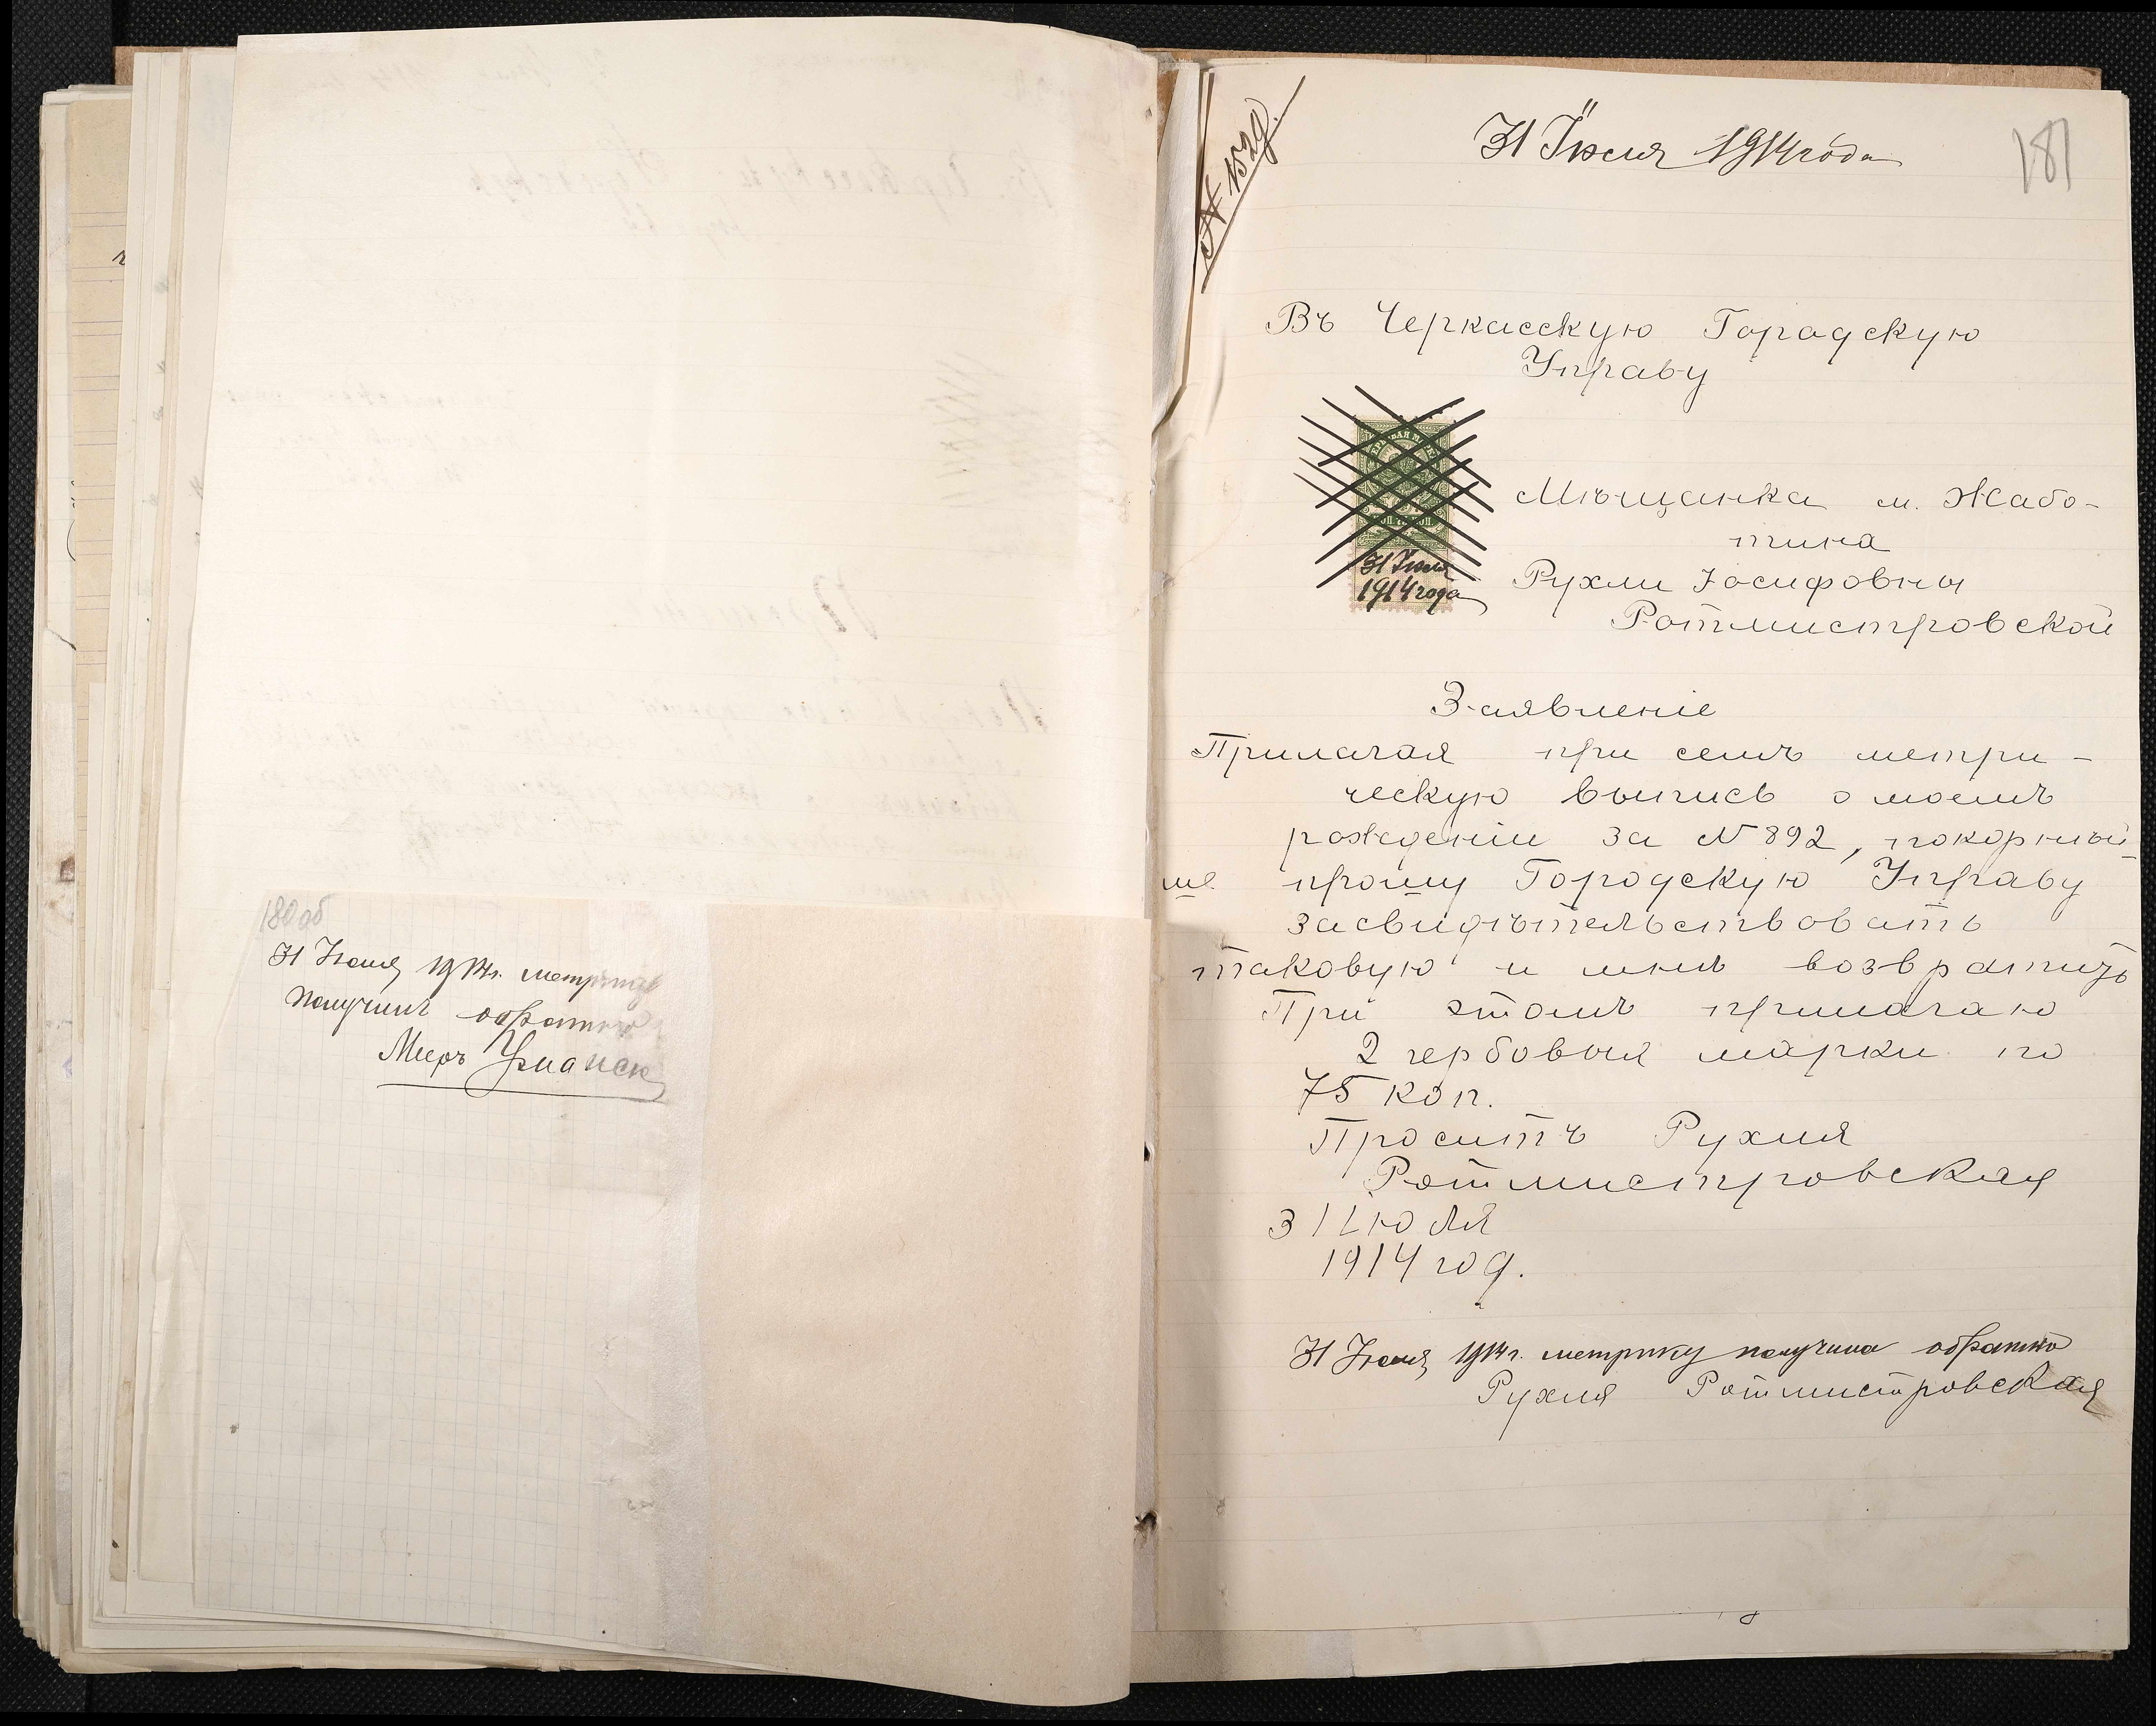 180 об
31 Июля 1914 г. метрику
получилъ обратно
Мееръ Уманск
181
№ 1529.
31 Іюля 1914 года
Въ Черкасскую Городскую
Управу
31 Июля
1914 года
Мѣщанка м. Жабо-
тина
Рухли Іосифовны
Ротмистровской
Заявленіе
Прилагая при семъ метри-
ческую выпись о моемъ
рождении за № 892, покорный-
ше прошу Городскую Управу
засвидѣтельствовать
таковую и мнѣ возвратить
При этомъ прилагаю
2 гербовыя марки по
75 коп.
Проситъ Рухля
Ротмистровская
31 Июля
1914 год.
31 Июля 1914 г. метрику получила обратно
Рухля Ротмистровская